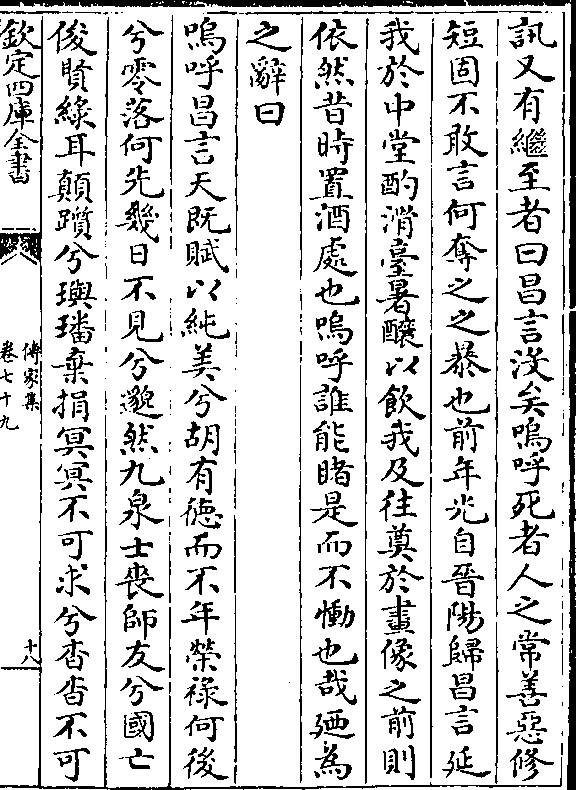 訊又有繼至者曰昌言沒矣嗚呼死者人之常善惡修
短固不敢言何奪之之暴也前年光自晉陽歸昌言延
我於中堂酌清臺暑釀以飲我及往奠於畫像之前則
依然昔時置酒處也嗚呼誰能睹是而不慟也哉廼為
之辭曰
嗚呼昌言天既賦以純美兮胡有徳而不年榮祿何後
兮零落何先幾日不見兮邈然九泉士喪師友兮國亡
俊賢綠耳顛躓兮璵璠棄捐冥冥不可求兮杳杳不可
欽定四庫全書
傳家集
卷七十九
十八